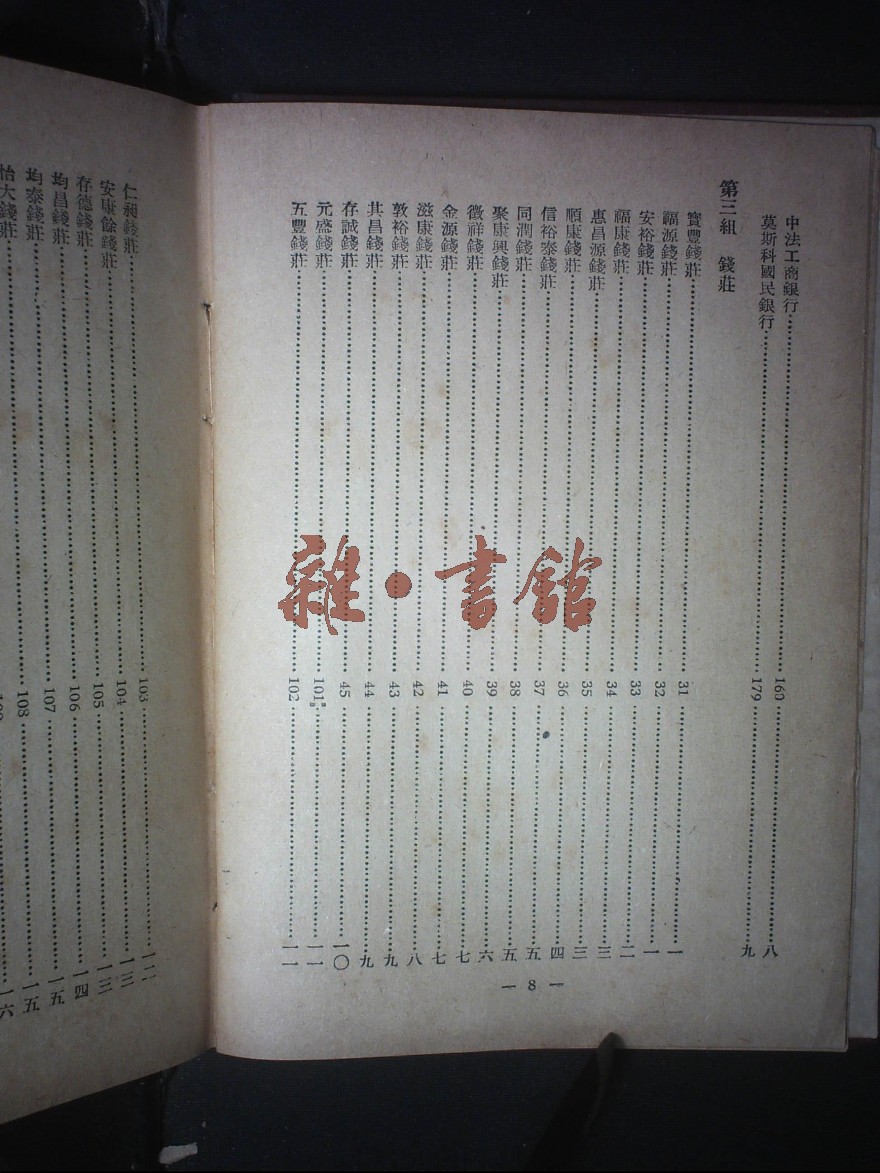 中法工商銀行 160 八
莫斯科國民銀行 179 九
第三組 錢莊
寶豐錢莊 31 一
福源錢莊 32 一
安裕錢莊 33 一
福康錢莊 34 二
惠昌源錢莊 35 三
順康錢莊 36 三
信裕泰錢莊 37 四
同潤錢莊 38 五
聚康興錢莊 39 五
徵祥錢莊 40 六
金源錢莊 41 七
滋康錢莊 42 七
敦裕錢莊 43 八
其昌錢莊 44 九
存誠錢莊 45 九
元盛錢莊 101 一〇
五豐錢莊 102 一一
— 8 —
仁昶錢莊 103 一二
安康餘錢莊 104 一三
存德錢莊 105 一三
均昌錢莊 106 一四
均泰錢莊 107 一五
怡大錢莊 108 一五
一六
雜·書館